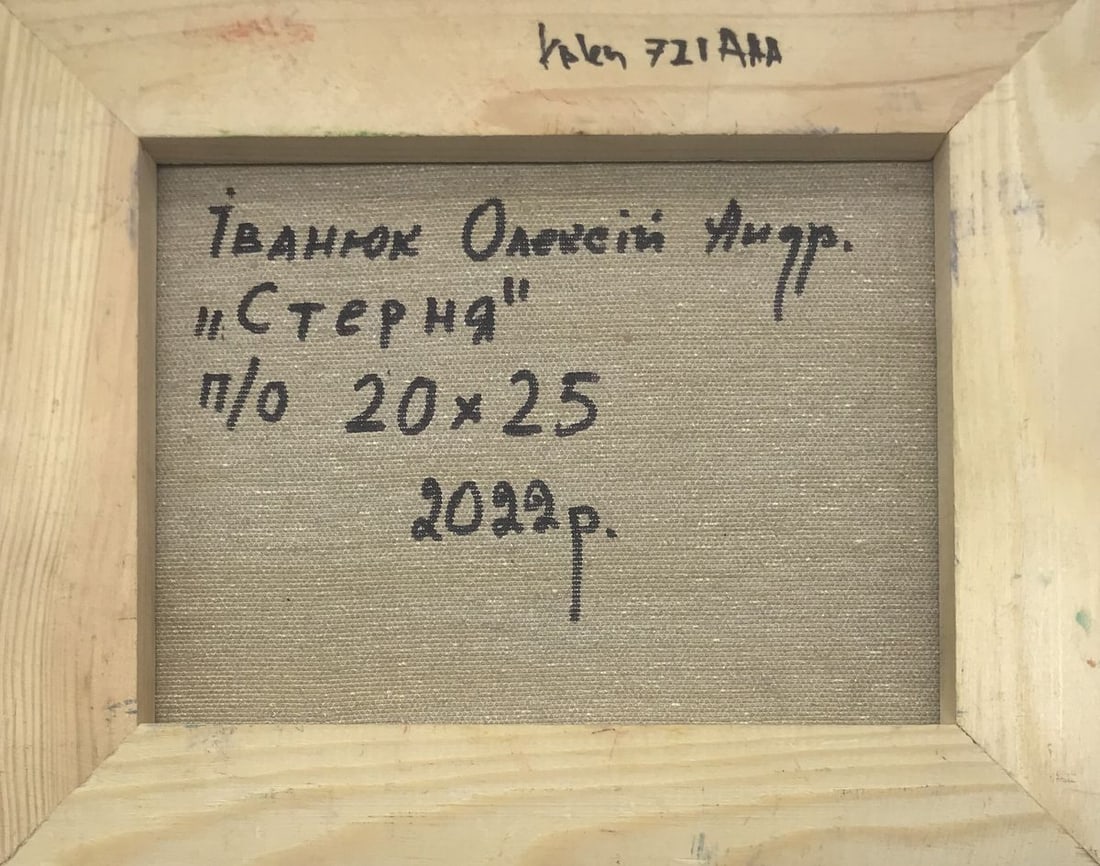 721AAA
Іванюк Олексій Андр.
„Стерня"
п/о 20×25
2022р.